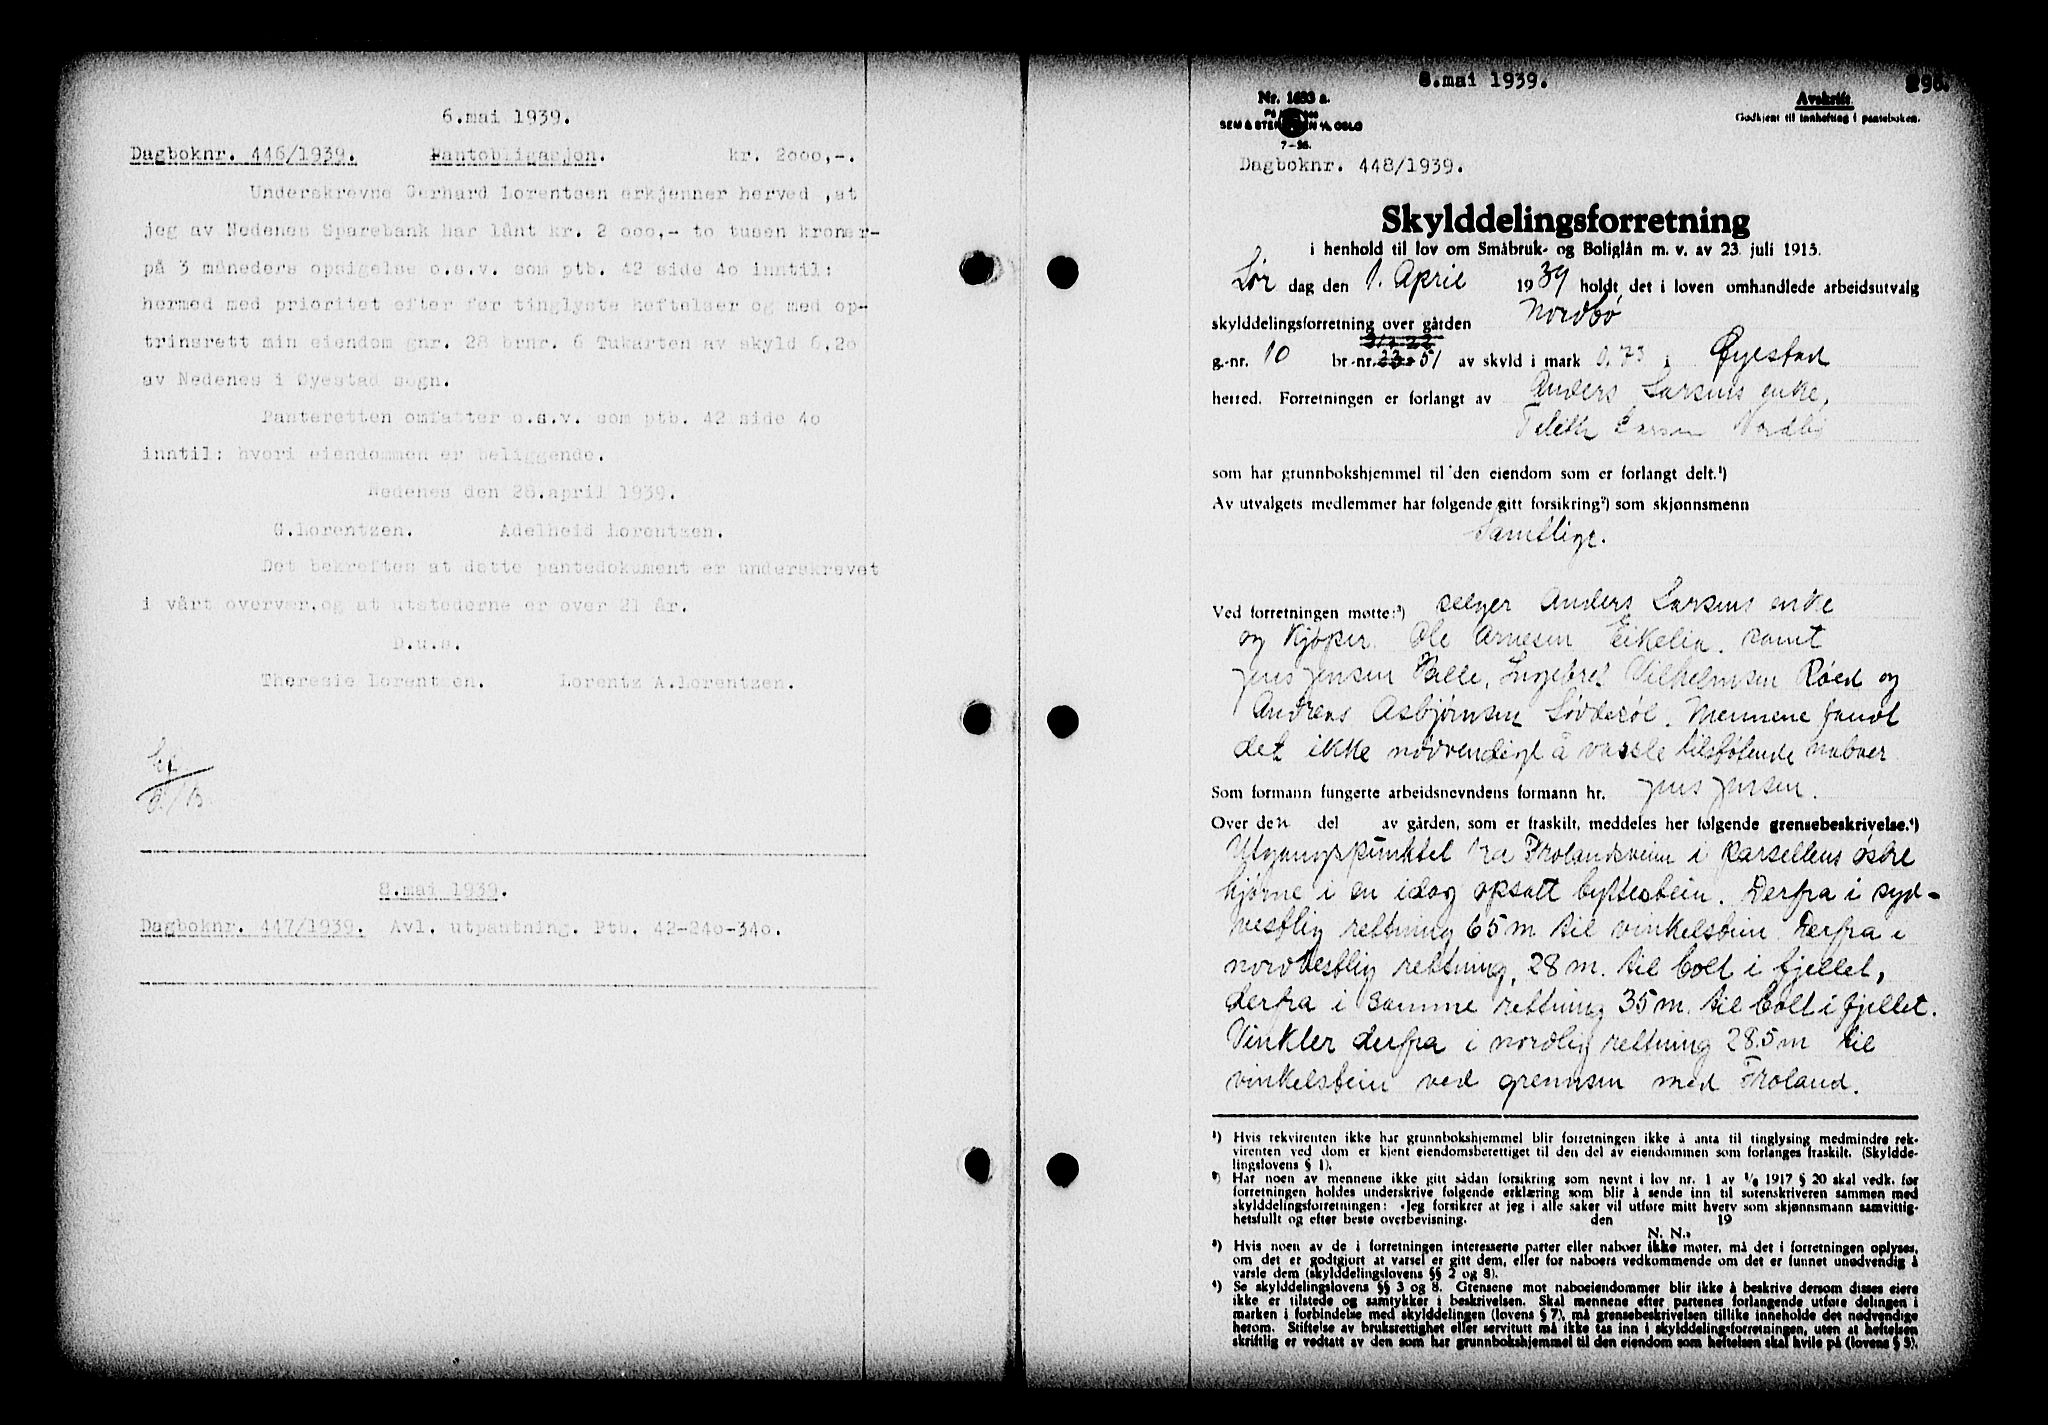 6.mai 1939.
Dagboknr. 446/1939. Pantobligasjon. kr. 2000,-.
Underskrevne Gerhard Lorentsen erkjenner herved ,at
jeg av Nedenes Sparebank har lånt kr. 2 000,- to tusen kroner-
på 3 måneders opsigelse o.s.v. som ptb. 42 side 40 inntil:
hermed med prioritet efter før tinglyste heftelser og med op-
trinsrett min eiendom gnr. 28 brnr. 6 Tukarten av skyld 6,20
av Nedenes i Øyestad sogn.
Panteretten omfatter o.s.v. som ptb. 42 side 40
inntil: hvori eiendommen er beliggende.
Nedenes den 28.april 1939.
G.Lorentzen. Adelheid Lorentsen.
Det bekreftes at dette pantedokument er underskrevet
i vårt overvær,og at utstederne er over 21 år.
D.u.s.
Theresie Lorentsen. Lorentz A.Lorentzen.
8.mai 1939.
Dagboknr. 447/1939. Avl. utpantning. Ptb. 42-240-340.
8.mai 1939.
Nr. 1633 a.
SEM & STENERSEN A/S OSLO
7-38.
Avskrift
Godkjent til innhefting i panteboken.
Dagboknr. 448/1939.
Skylddelingsforretning
i henhold til lov om Småbruk- og Boliglån m. v. av 23. juli 1915.
Lør dag den 1. April 1939 holdt det i loven omhandlede arbeidsutvalg
skylddelingsforretning over gården Nordbø
g.-nr. 10 br.-nr. 51 av skyld i mark 0,73 i Øyestad
herred. Forretningen er forlangt av Anders Larsens enke,
Nordbø
som har grunnbokshjemmel til den eiendom som er forlangt delt.¹)
Av utvalgets medlemmer har følgende gitt forsikring²) som skjønnsmenn
Samtlige.
Ved forretningen møtte:³) selger Anders Larsens enke
og Kjøper Ole Arnesen Eikelia. samt
Jens Jensen Valle, Ingebret Vilhelmsen Røed og
Andreas Asbjørnsen Løddesøl. Mennene fandt
det ikke nødvendigt å varsle tilstøtende naboer
Som formann fungerte arbeidsnevndens formann hr. Jens Jensen.
Over den del av gården, som er fraskilt, meddeles her følgende grensebeskrivelse.⁴)
Utgangspunktet fra Frolandsveien i parsellens østre
hjørne i en idag opsatt byttestein. Derfra i syd-
vestlig rettning 65 m til vinkelstein. Derfra i
nordvestlig rettning, 28 m. til bolt i fjellet,
derfra i samme rettning 35 m. til bolt i fjellet.
Vinkler derfra i nordlig rettning 28.5 m til
vinkelstein ved grensen med Froland.
¹) Hvis rekvirenten ikke har grunnbokshjemmel blir forretningen ikke å anta til tinglysing medmindre rek-
virenten ved dom er kjent eiendomsberettiget til den del av eiendommen som forlanges fraskilt. (Skyldde-
lingslovens § 1).
²) Har noen av mennene ikke gitt sådan forsikring som nevnt i lov nr. 1 av 1/6 1917 § 20 skal vedk. før
forretningen holdes underskrive følgende erklæring som blir å sende inn til sorenskriveren sammen med
skylddelingsforretningen: «Jeg forsikrer at jeg i alle saker vil utføre mitt hverv som skjønnsmann samvittig-
hetsfullt og efter beste overbevisning. den 19
N. N.»
³) Hvis noen av de i forretningen interesserte parter eller naboer ikke møter, må det i forretningen oplyses,
om det er godtgjort at varsel er gitt dem, eller for naboers vedkommende om det er funnet unødvendig å
varsle dem (skylddelingslovens §§ 2 og 8).
⁴) Se skylddelingslovens §§ 3 og 8. Grensene mot naboeiendommer blir ikke å beskrive dersom disses eiere
ikke er tilstede og samtykker i beskrivelsen. Skal mennene efter partenes forlangende utføre delingen i
marken i forbindelse med skylddelingen (lovens § 7), må grensebeskrivelsen tillike inneholde det nødvendige
herom. Stiftelse av bruksrettighet eller servitutt må ikke tas inn i skylddelingsforretningen, uten at heftelsen
skriftlig er vedtatt av den som har grunnbokshjemmel til den eiendom som heftelsen skal hvile på (lovens § 5).